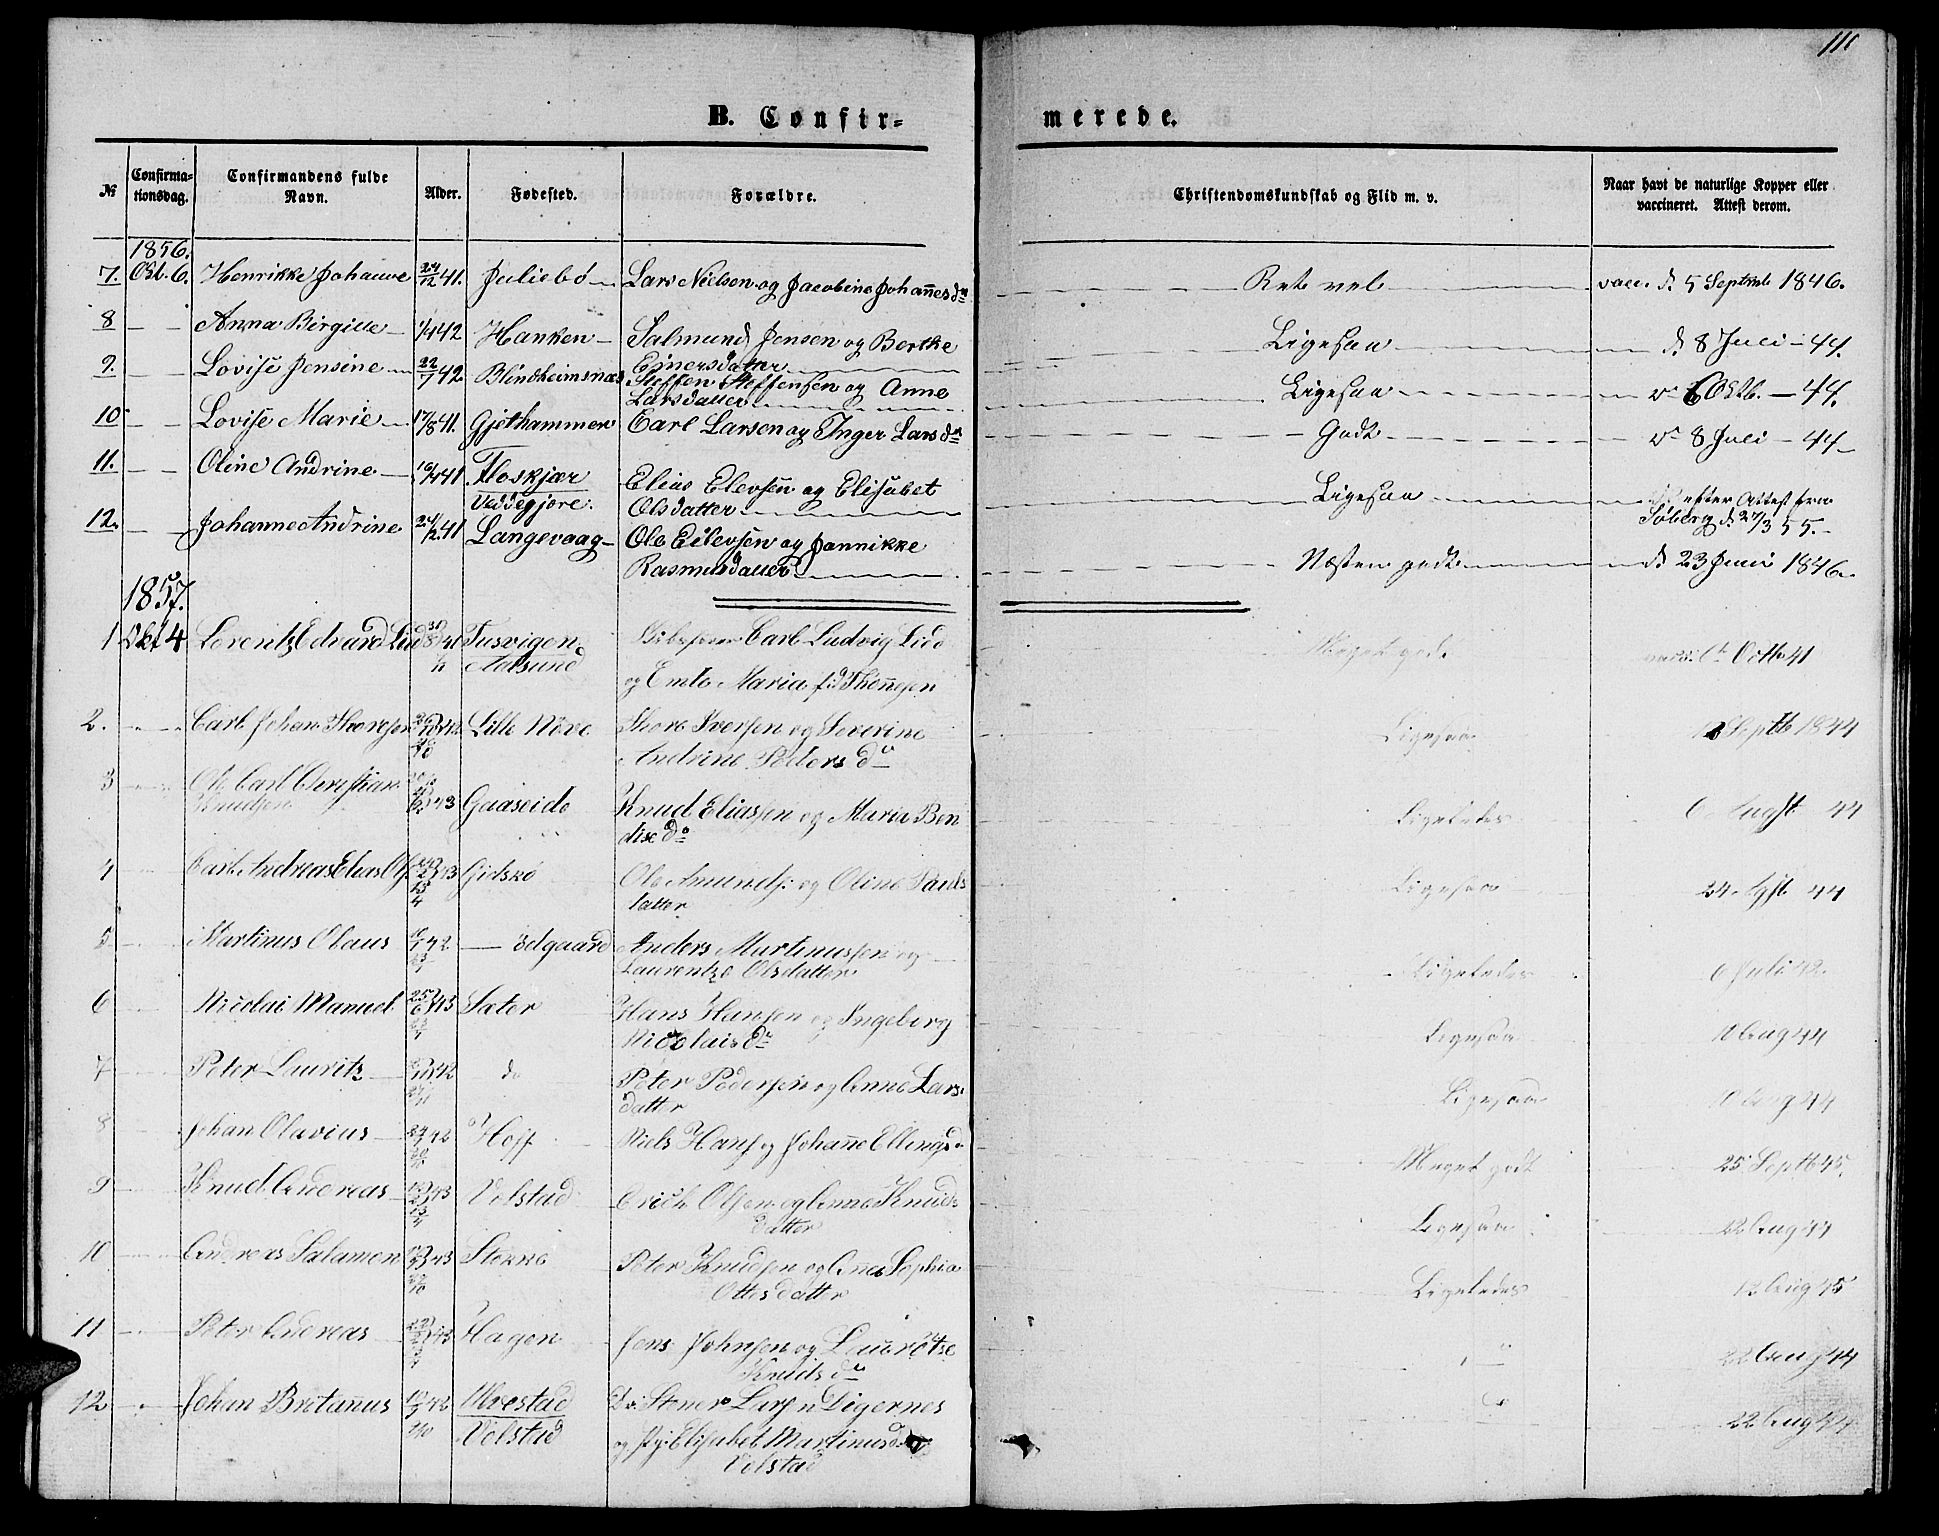 111
B. Confir=
merede.
№ Confirma= tionsdag. Confirmandens fulde Navn. Alder. Fødested. Forældre. Christendomskundskab og Flid m. v. Naar havt de naturlige Kopper eller vaccineret. Attest derom.
1856.
7. Okt. 6. Henrikke Johanne 24/12 41. Juliebø Lars Nielsen og Jacobine Johañesdr Ret vel vacc. d. 5 Septmb 1846.
8 Anna Birgitte 1/4 42 Hanken Salmund Jensen og Berthe Ejnersdatter Ligesaa d. 8 Juli - 44.
9. Lovise Jensine 22/7 42 Blindheimsnæs Steffen Steffensen og Anne Larsdatter Ligesaa 6 Oktb. - 44.
10 Lovise Marie 17/8 41. Gjethammer Carl Larsen og Inger Larsdr Godt 8 Juli - 44
11. Oline Andrine 10/4 41 Floskjær
Veddegjore. Elias Elevsen og Elisabet Olsdatter Ligesaa efter Attest fra Søberg d. 27/3 55.
12. Johanne Andrine 24/2 41 Langevaag Ole Eilevsen og Jannikke Rasmusdatter Næsten godt d. 23 Juni 1846.
1857.
1 Okt 4 Lorentz Edvard Lid 41 Tusvigen
Aalsund Carl Ludvig Lid
og Emte Maria f. Thoñesen Meget godt Octb 41
2. Carl Johan Thoresen 42 Lille Nøve Thore Iversen og Severine
Andrine Peders dr Ligesaa Septb 1844
3 Ole Carl Christian
Knudsen 43 Gaaseide Knud Eliassen og Maria Ben
dixdr Ligeledes 6 Augst 44
4 Carl Andreas Elias Ols 43 Gidskø Ole Amunds. og Oline Pauls
datter Ligesaa 24. Agst 44
5 Martinus Olaus 42 Anders Martinussen og
Laurentze Olsdatter Ligeledes 6 Juli 42.
6 Nicolai Manuel 25/6 43 Sæter Hans Hansen og Ingeborg
Nicolaisdr Ligesaa 10 Aug 44
7 Peter Lauritz 42 do Peter Pedersen og Anne Lars
datter Ligesaa 10 Aug 44
8 Johan Olavius 42 Hoff Niels Hans. og Johanne Ellingsd Meget godt 25 Septb 45.
9 Knud Andreas 43 Volstad Erich Olsen og Anne Knuds
datter Ligesaa 22 Aug 44
10 Andreas Salamon 43 Stokke Peter Knudsen og Añe Sophia
Ottesdatter Ligeledes 13 Aug 45
11 Peter Andreas 43 Hagen Jens Johnsen og Laurentse
Knuds dr 22 Aug 44
12 Johan Bretañus 42
Volstad Stener Lars n Digernes
og Elisabet Martinusd
Volstad 22 Aug 44